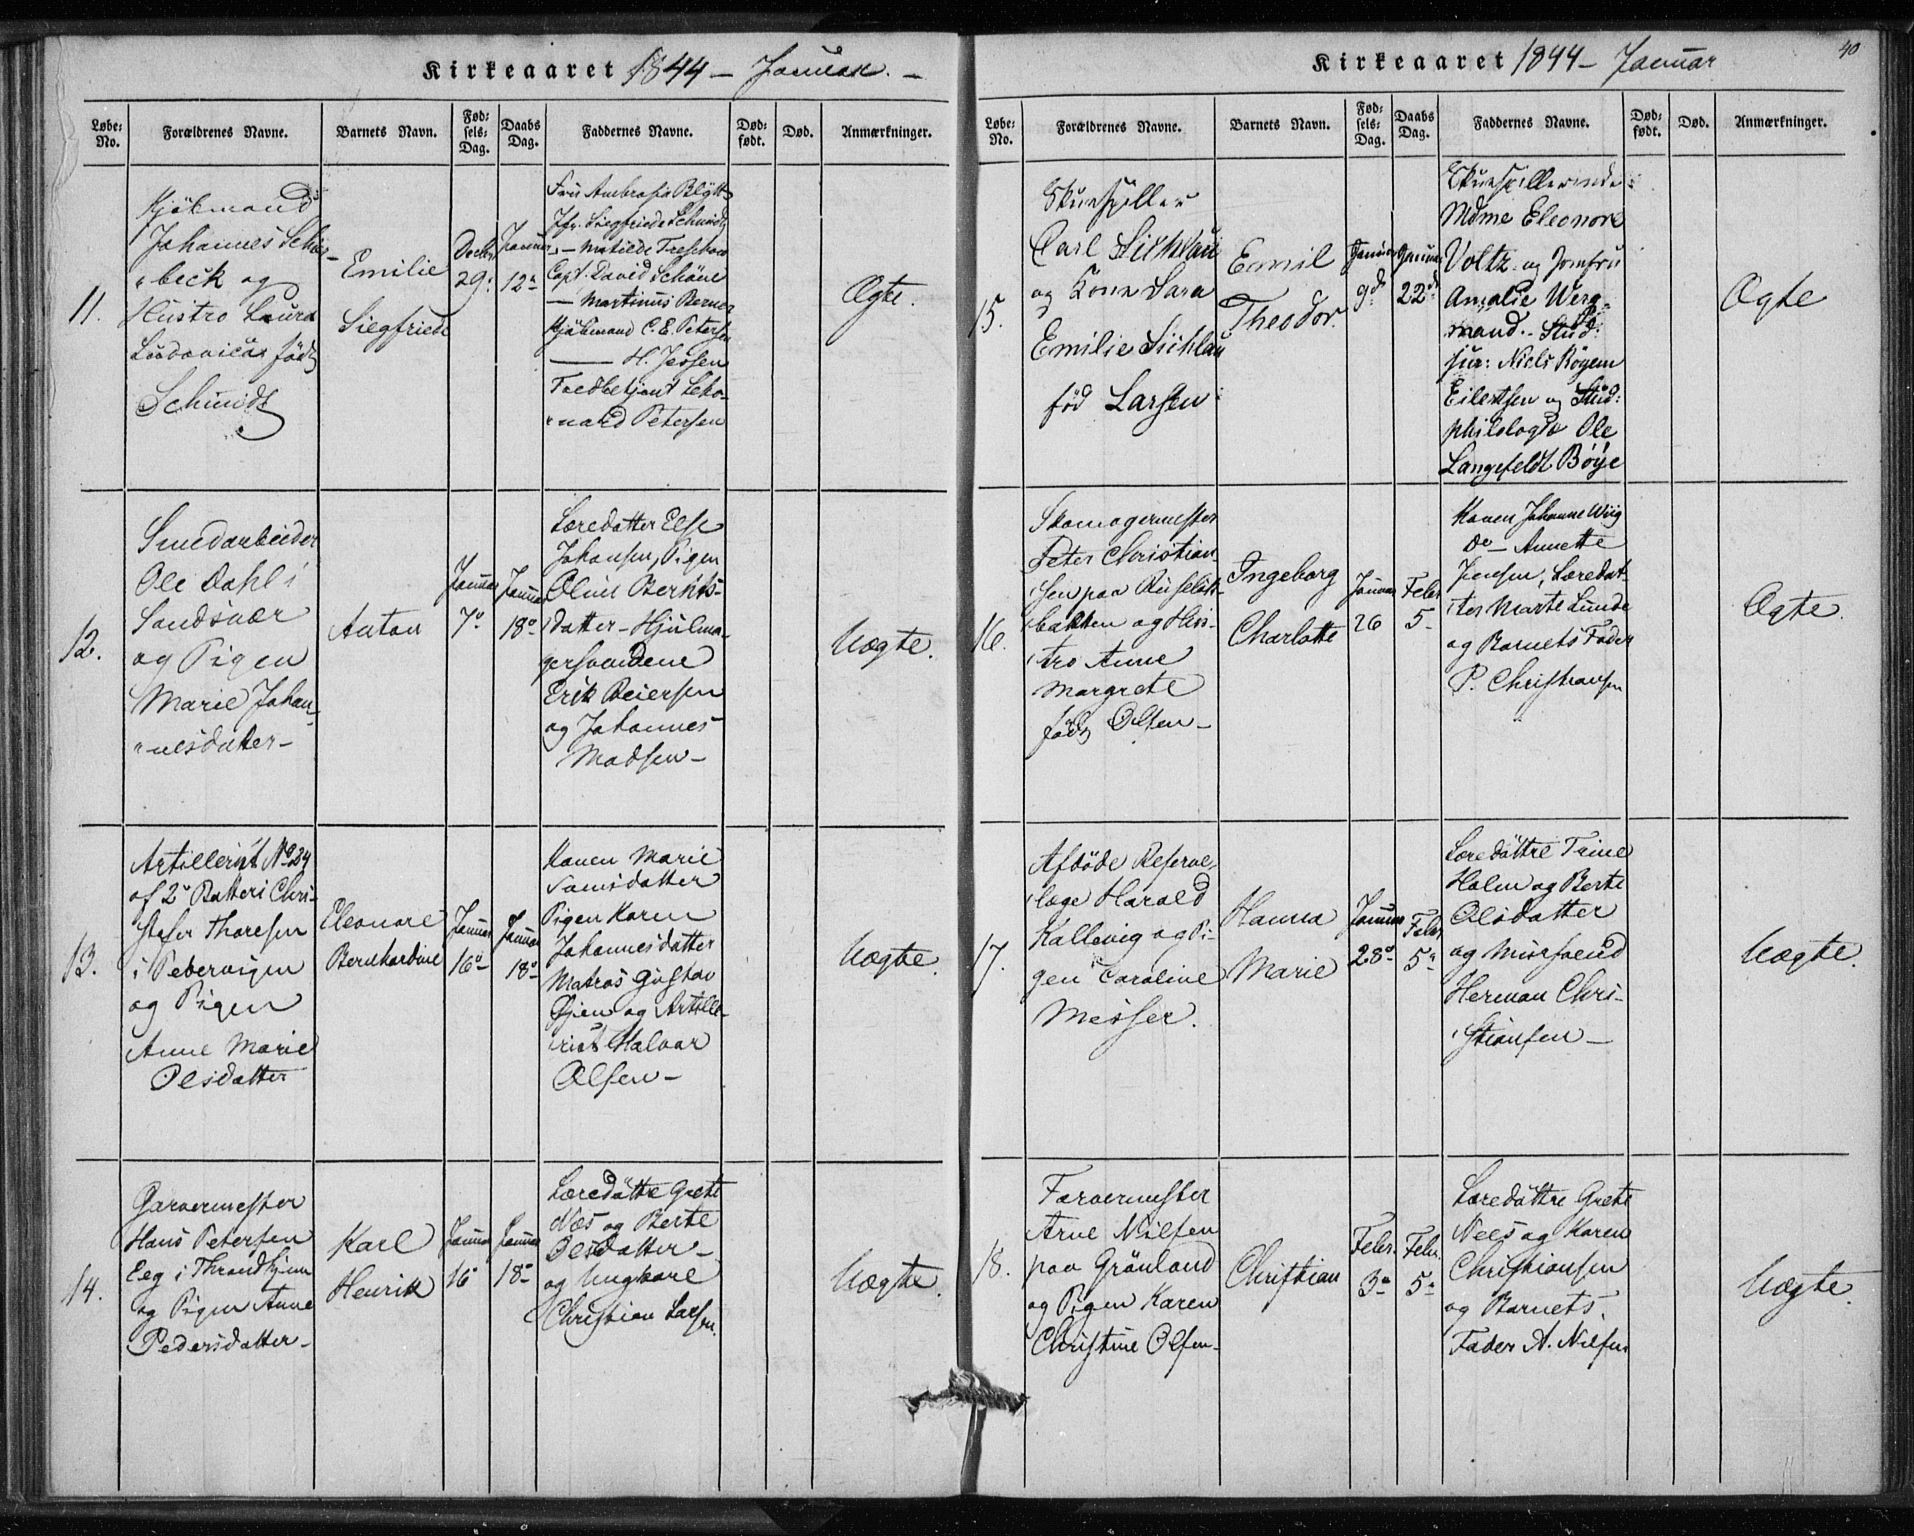 Kirkeaaret 1844 – Januar. –
Løbe-No. Forældrenes Navne. Barnets Navn. Fødsels-Dag. Daabs Dag. Faddernes Navne. Dødfødt. Død. Anmærkninger.
11.
Kjøbmand
Johannes
beck og
Hustro Laura
Ludovica født
Schmidt
Emilie
Siegfriede
Decbr
29:
Januar
12te
Fru Ambrosia Blytt
Jfr. Siegfriede Schmidt
— Matilde Treschow
Capt. David
— Martinus Berner
Kjøbmand C. E. Petersen
— H. Jessen
Petersen
Ægte.
12.
Smedarbeider
Ole Dahl i
Sandsvær
og Pigen
Marie Johan-
nesdatter –
Anton
Januar
7de
Januar
18de
Læredatter Else
Johansen, Pigen
Oline Bernts-
datter – Hjulma-
gersvendene
Erik Reiersen
og Johannes
Madsen –
Uægte.
13.
Artillerist No 24
af 2de Batteri Chri-
stofer Thoresen
i Pebervigen
og Pigen
Anne Marie
Olsdatter
Eleonore
Bernhardine
Januar
16de
Januar
18de
Konen Marie
Pigen Karen
Johannesdatter
Matros Gustav
Øien og Artille-
rist Halvor
Olsen –
Uægte.
14.
Garvermester
Hans Petersen
Eeg i Throndhjem
og Pigen Anne
Pedersdatter –
Karl
Henrik
Januar
16de
Januar
18de
Læredøttre Grete
Næs og Berte
Olsdatter –
og Ungkarl
Christian Larsen.
Uægte.
Kirkeaaret 1844 – Januar
40
Løbe-No. Forældrenes Navne. Barnets Navn. Fødsels-Dag. Daabs Dag. Faddernes Navne. Dødfødt. Død. Anmærkninger.
15.
Skuespiller
Carl Sichlau
og Kone Sara
Emilie Sichlau
fød Larsen
Emil
Theodor.
Januar
9de
Januar
22de
Skuespillerinde
Mdme Eleonore
Voltz og Jomfru
Amalie Werg-
mand. Stud:
jur: Niels Røyem
Eilertsen og Stud:
philologiæ Ole
Langefeldt Bøye
Ægte
16.
Skomagermester
Peter Christian-
sen paa Ruseløk-
bakken og Hus-
tro Anne
Margrete
født Olsen –
Ingeborg
Charlotte
Januar
26
Febr
5
Konen Johanne Wiig
Do – Annette
Jensen, Læredat-
ter Marte Lunde
og Barnets Fader
P. Christiansen
Ægte.
17.
Afdøde Reserve-
læge Harald
Kallevig og Pi-
gen Caroline
Messer.
Hanna
Marie
Januar
28de
Febr
5te
Læredøttre Trine
Holm og Berte
Olsdatter
og Mursvend
Herman Chri-
stiansen –
Uægte.
18.
Farvermester
Arne Nilsen
paa Grønland
og Pigen Karen
Christine Olsen –
Christian
Febr.
3de
Febr.
5te
Læredøttre Grete
Nees og Karen
Christiansen
og Barnets
Fader A. Nilsen
Uægte.